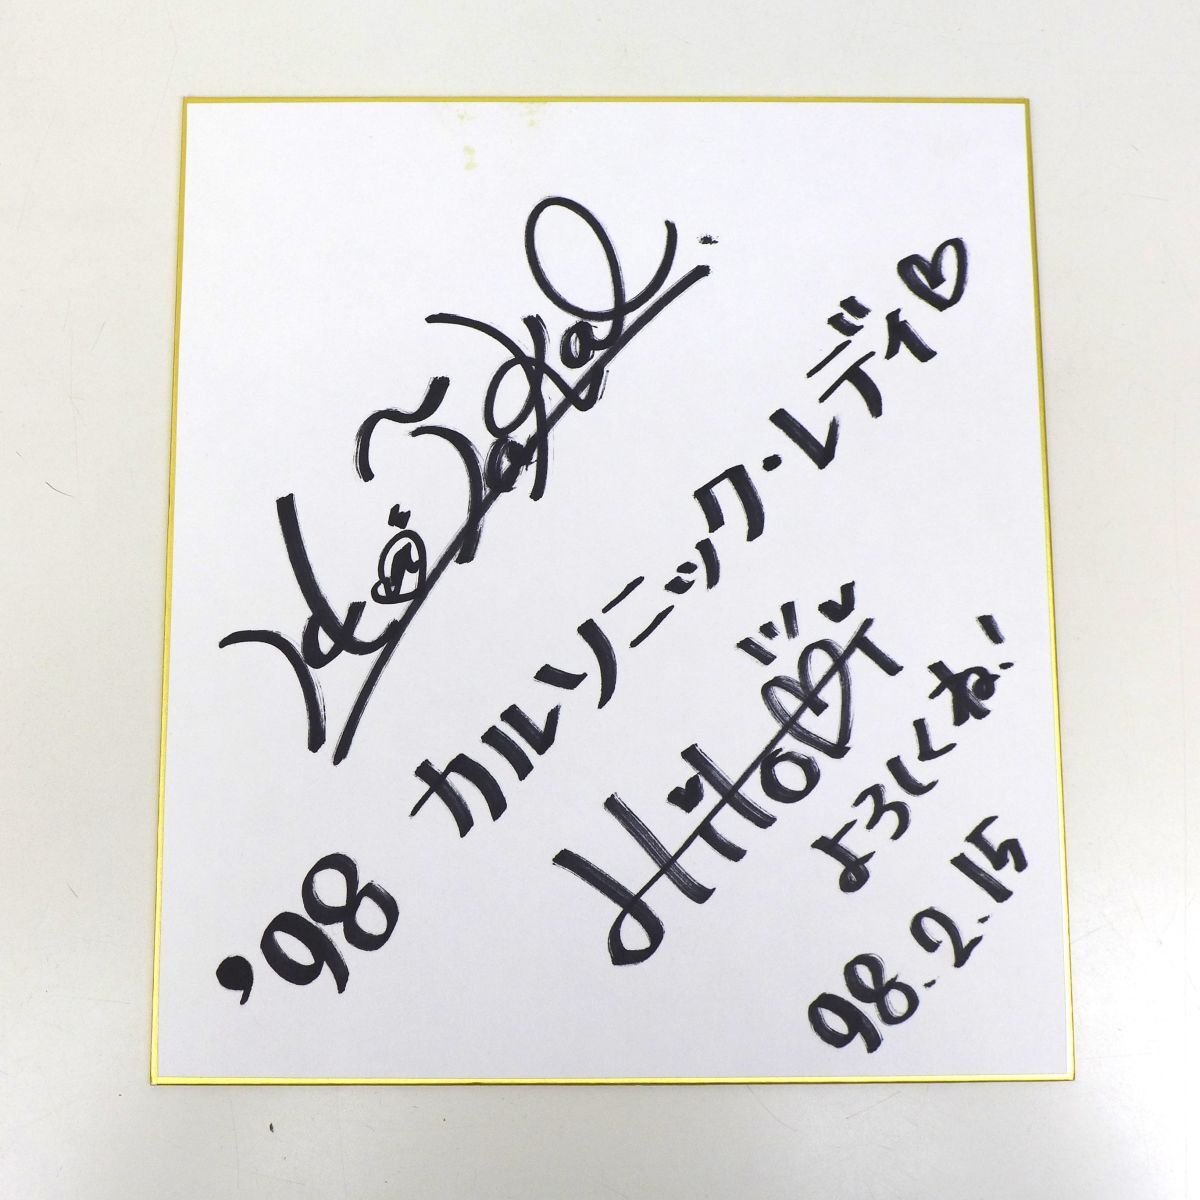 '98
カルソニック・レディ♡
HiTOMi
よろしくね!
98.2.15